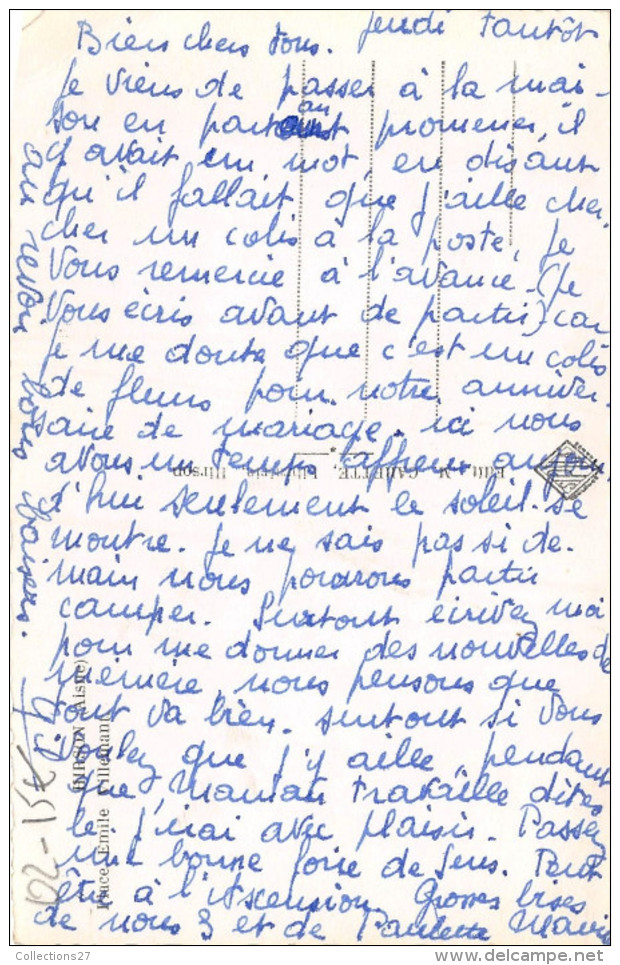 Jeudi tantôt
Bien chers tous.
Je viens de passer à la mai-
son en partant promener, il
y avait un mot en disant
qu'il fallait que j'aille cher
cher un colis à la poste, je
vous remercie à l'avance. (Je
vous écris avant de partir) car
je me doute que c'est un colis
de fleurs pour notre anniver.
saire de mariage. ici nous
avons un temps affreux aujour
d'hui seulement le soleil se
montre. Je ne sais pas si de.
main nous pourrons partir
camper. Surtout écrivez moi
pour me donner des nouvelles de
mémère, nous pensons que
tout va bien. surtout si vous
voulez que j'y aille, pendant
que Maman travaille dites
le. J'irai avec plaisir. Passez
une bonne foire de Sens. Peut
être à l'Ascension. Grosses bises
de nous 3 et de Paulette
au revoir bons baisers.
HIRSON (Aisne)
Place Emile Villemant
Edit. M. CARETTE, Hirson
02-152
Collections27